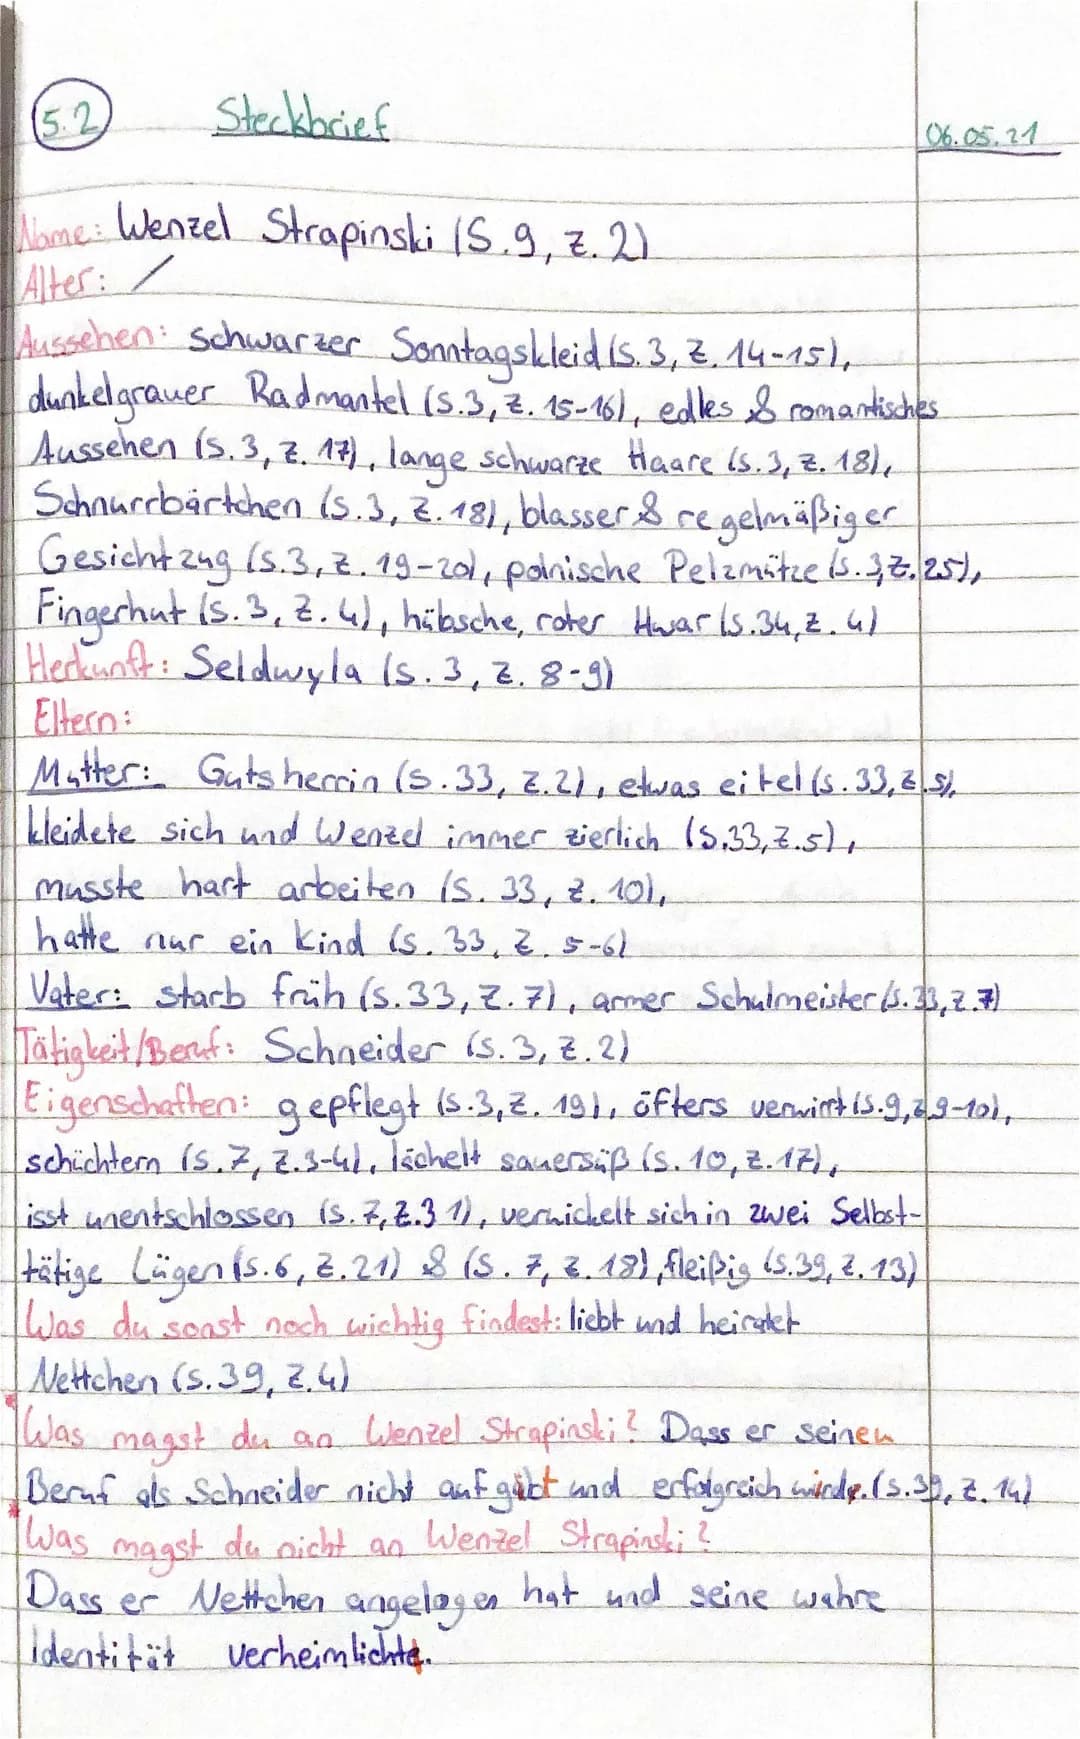 5.2 Steckbrief 06.05.21
Name: Wenzel Strapinski (S.9, Z. 2)
Alter: /
Aussehen: schwarzer Sonntagskleid (S. 3, Z. 14-15),
dunkelgrauer Radmantel (S.3, Z. 15-16), edles & romantisches
Aussehen (S. 3, Z. 17), lange schwarze Haare (S. 3, Z. 18),
Schnurrbärtchen (S.3, Z. 18), blasser & regelmäßiger
Gesichtzug (S.3, Z. 19-20), polnische Pelzmütze (S. 3, Z. 25),
Fingerhut (S. 3, Z. 4), hübsche, roter (S. 34, Z. 4)
Herkunft: Seldwyla (S. 3, Z. 8-9)
Eltern:
Mutter: Gutsherrin (S. 33, Z.2), etwas eitel (S. 33, Z. 5),
kleidete sich und Wenzel immer zierlich (S.33, Z.5),
musste hart arbeiten (S. 33, Z. 10),
hatte nur ein Kind (S. 33, Z. 5-6)
Vater: starb früh (S.33, Z. 7), armer Schulmeister (S. 33, Z. 7)
Tätigkeit/Beruf: Schneider (S. 3, Z. 2)
Eigenschaften: gepflegt (S.3, Z. 19), öfters verwirrt (S.9, Z 9-10),
schüchtern (S. 7, Z.3-4), lächelt sauersüß (S. 10, Z. 17),
isst unentschlossen (S. 7, Z.31), verwickelt sich in zwei Selbst-
tätige Lügen (S.6, Z. 21) & (S. 7, Z. 18), fleißig (S.39, Z. 13)
Was du sonst noch wichtig findest: liebt und heiratet
Nettchen (S. 39, Z.4)
Was magst du an Wenzel Strapinski? Dass er seinen
Beruf als Schneider nicht aufgibt und erfolgreich wird. (S.39, Z. 14)
Was magst du nicht an Wenzel Strapinski?
Dass er Nettchen angelogen hat und seine wahre
Identität verheimlichte.